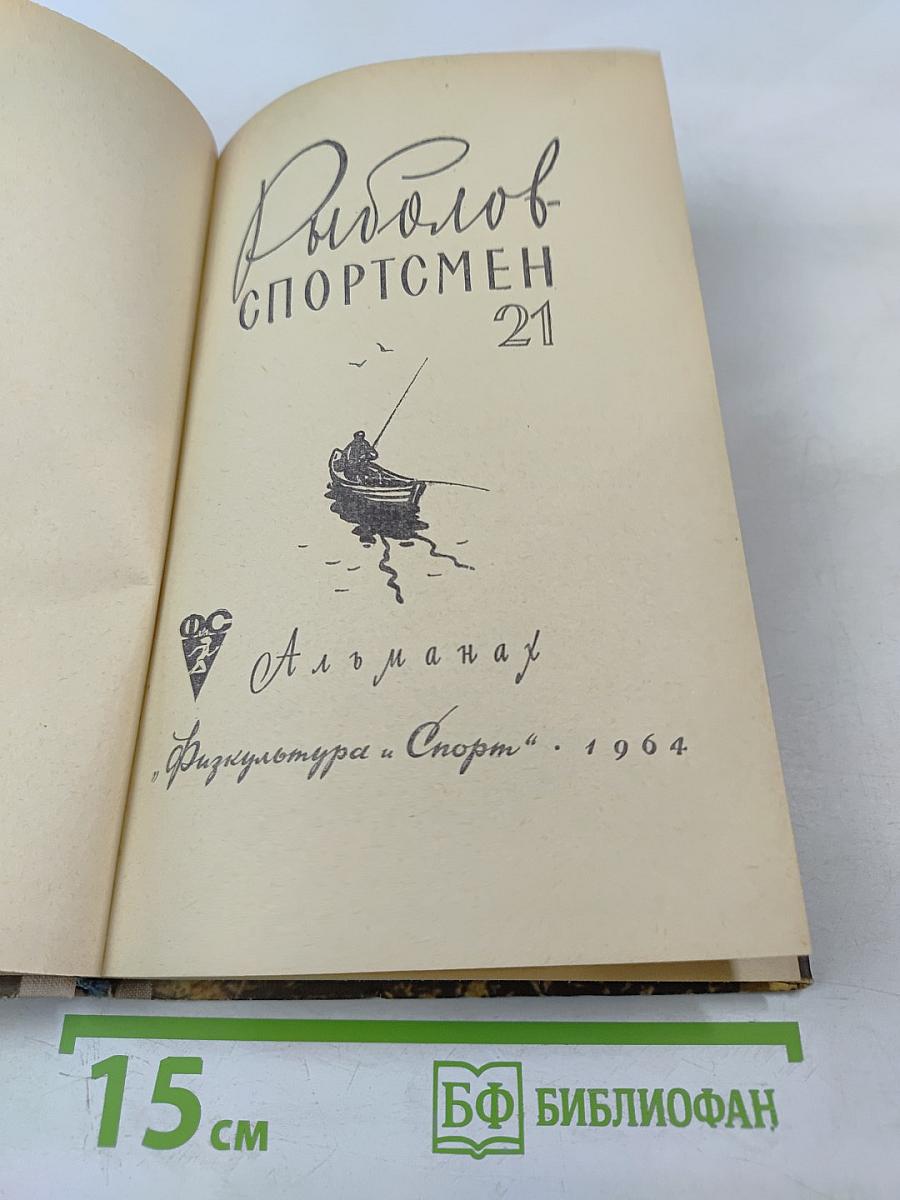 Рыболов-
СПОРТСМЕН
21
ФиС
Альманах
„Физкультура и Спорт“ · 1964
15 см
БФ БИБЛИОФАН